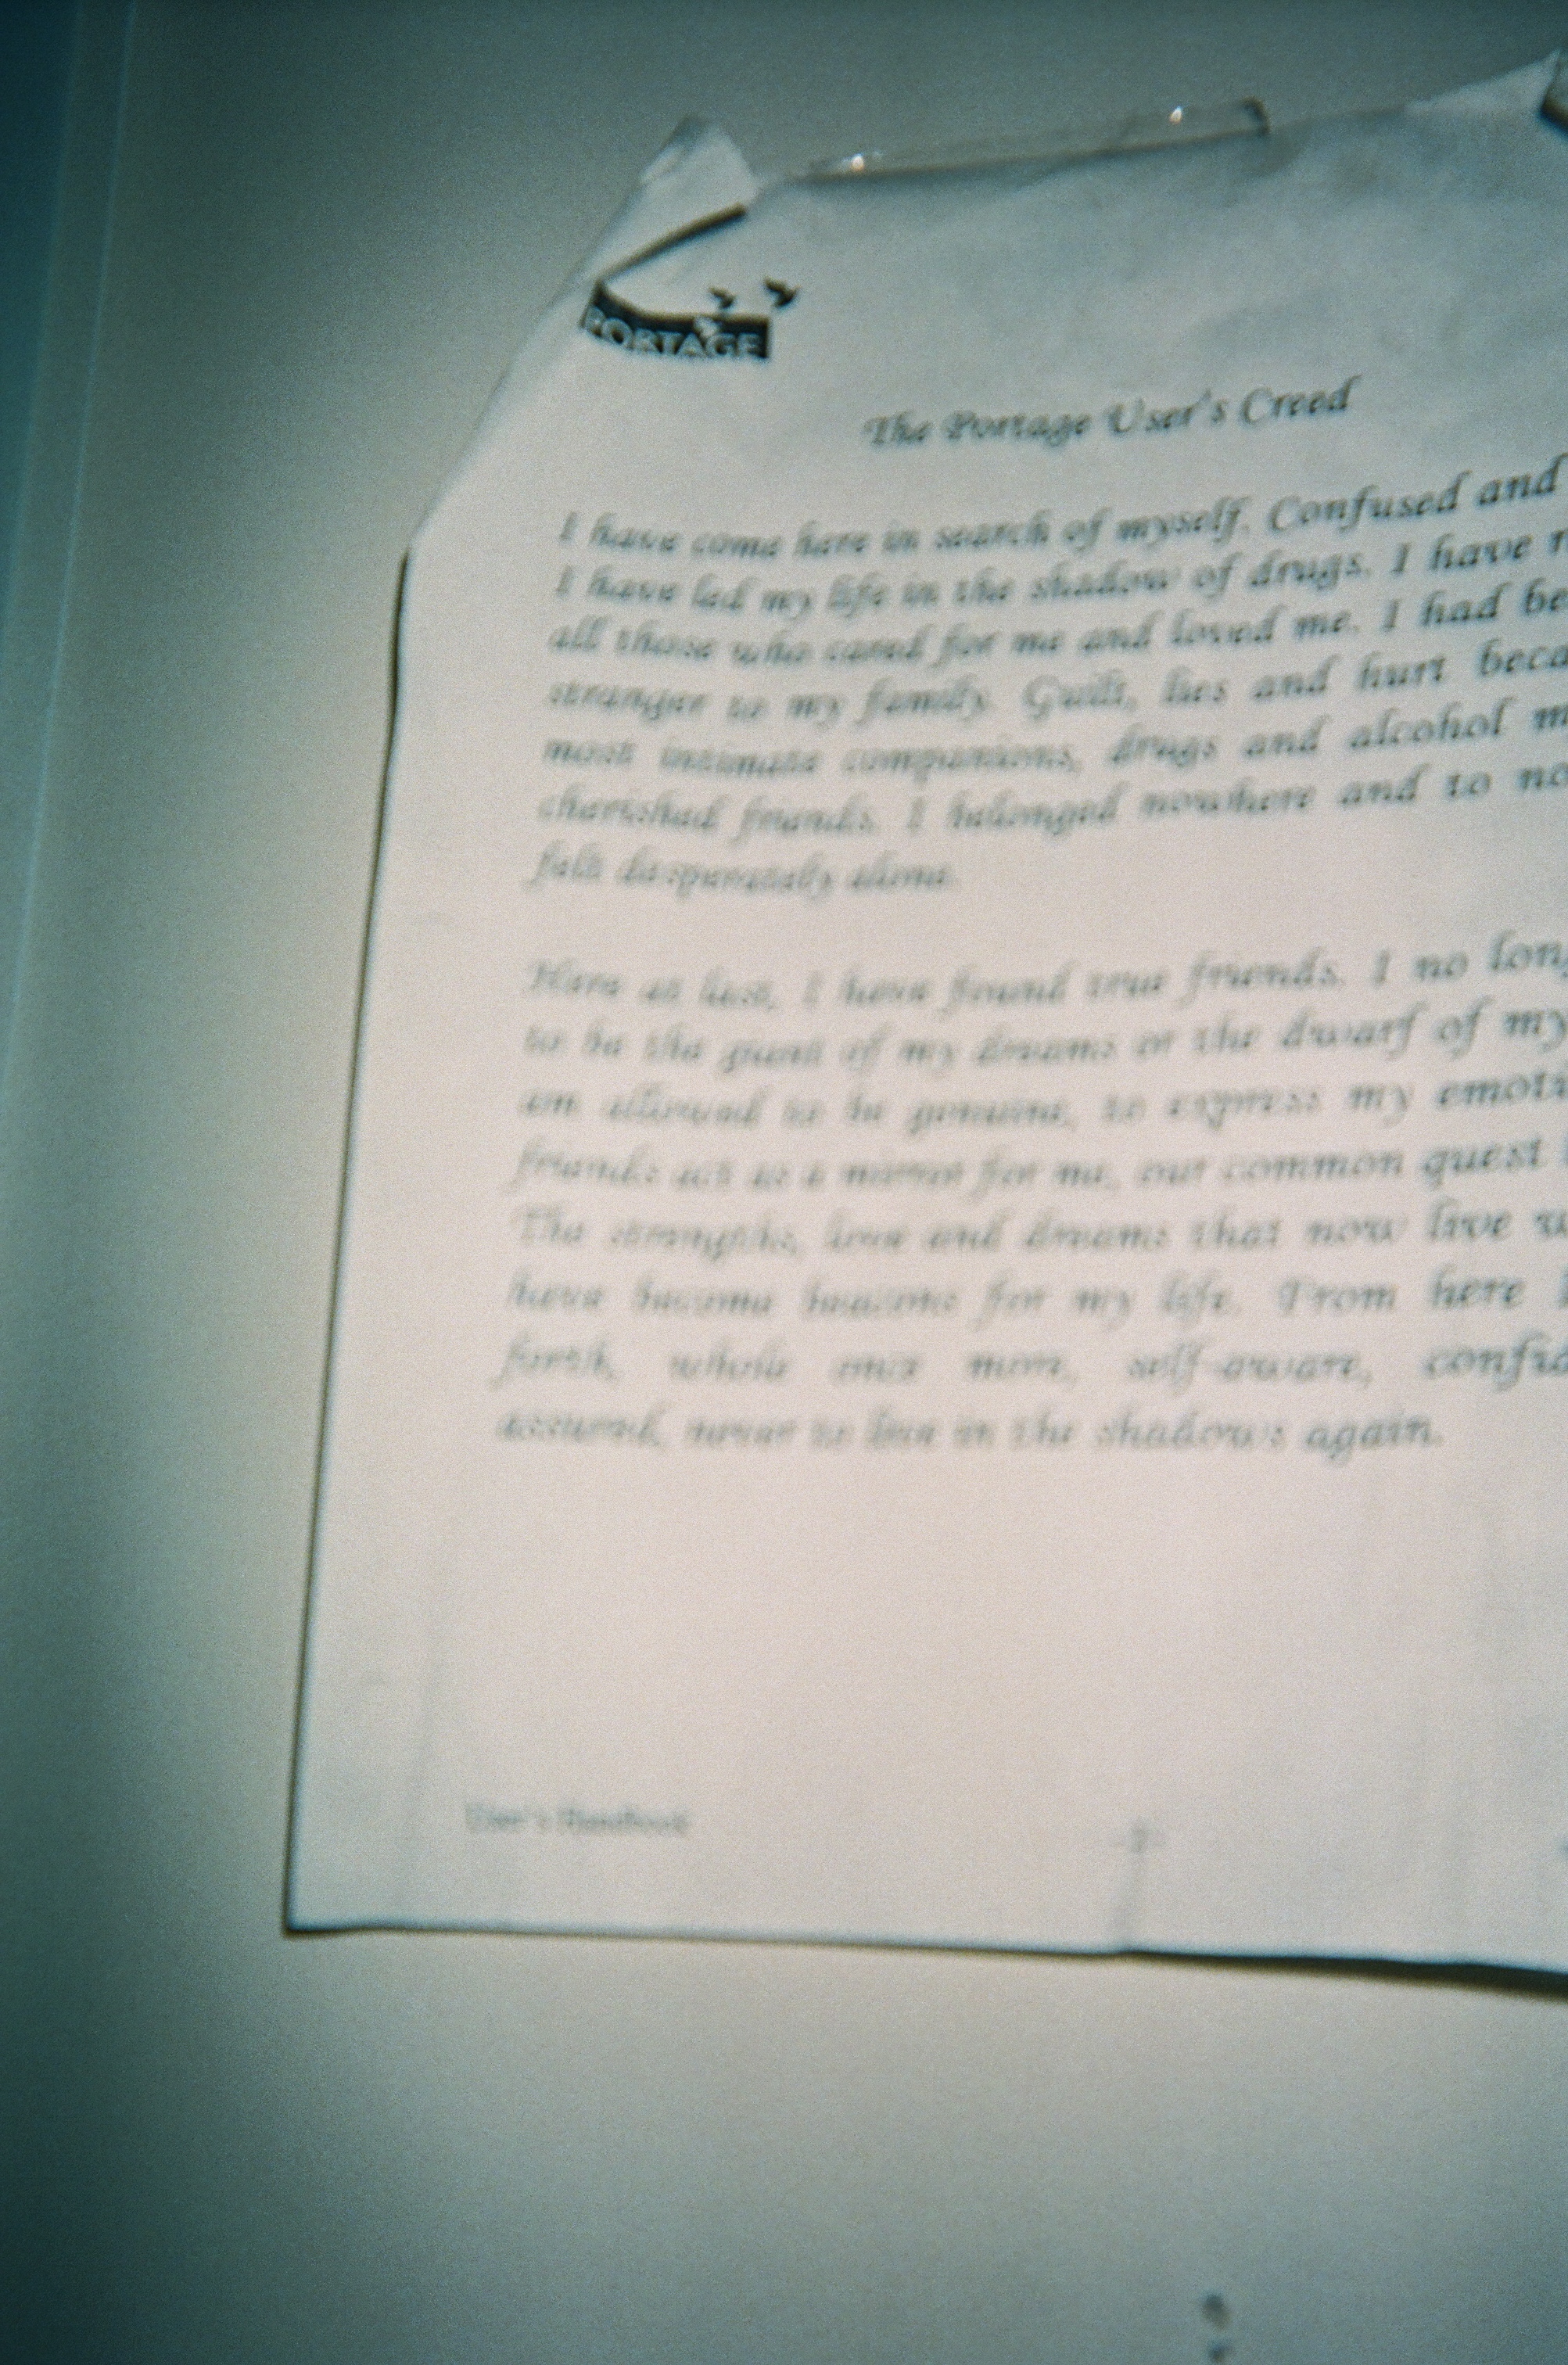 PORTAGE
The Portage User's Creed
I have come here in search of myself. Confused and
I have led my life in the shadow of drugs. I have r
all those who cared for me and loved me. I had be
stranger to my family. Guilt, lies and hurt beca
most intimate companions, drugs and alcohol m
cherished friends. I belonged nowhere and to no
felt desperately alone.
Here at last, I have found true friends. I no lon
to be the giant of my dreams or the dwarf of my
am allowed to be genuine, to express my emoti
friends act as a mirror for me, our common quest
The strengths, love and dreams that now live w
have become beacons for my life. From here I
forth, whole once more, self-aware, confid
assured, never to live in the shadows again.
User's Handbook